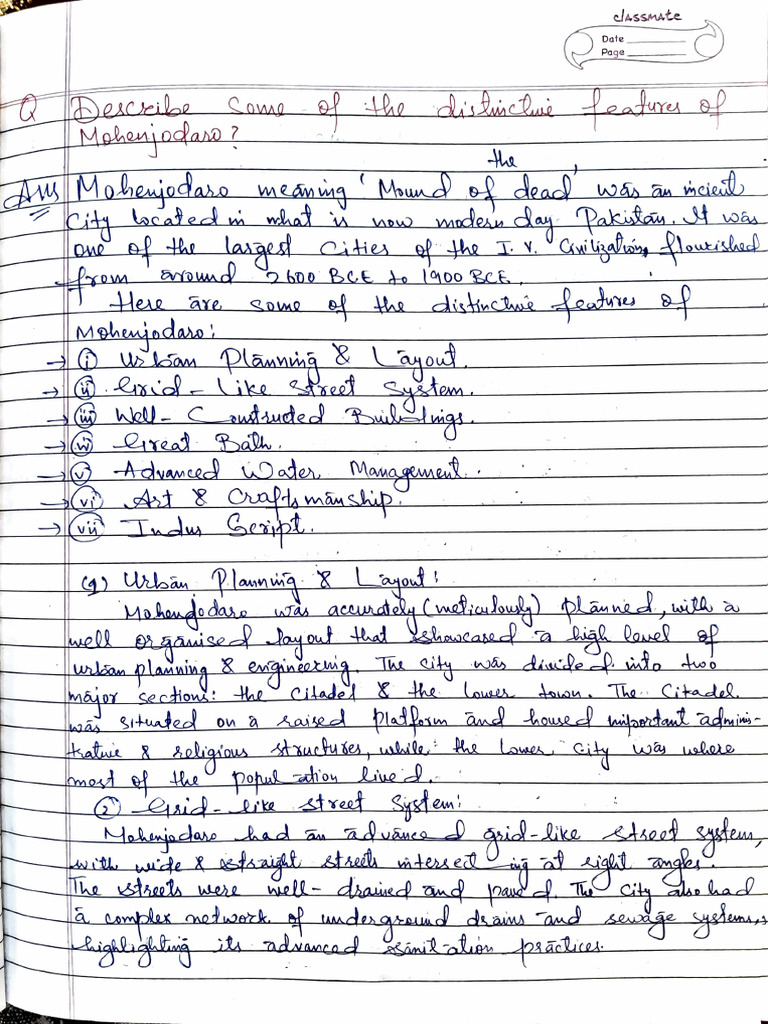 classmate
Date
Page
Q Describe some of the distinctive features of
Mohenjodaro?
the
Ans Mohenjodaro meaning 'Mound of dead' was an incient
City located in what is now modern day Pakistan. It was
one of the largest Cities of the I. V. Civilization, flourished
from around 2600 BCE to 1900 BCE.
Here are some of the distinctive features of
Mohenjodaro:
→ (i) Urban Planning & Layout.
→ (ii) Grid-Like Street System.
→ (iii) Well-Constructed Buildings.
→ (iv) Great Bath.
→ (v) Advanced Water Management.
→ (vi) Art & Craftsmanship.
→ (vii) Indus Script.
(1) Urban Planning & Layout:
Mohenjodaro was accurately (meticulously) planned, with a
well organised layout that showcased a high level of
urban planning & engineering. The city was divided into two
major sections: the citadel & the lower town. The Citadel
was situated on a raised platform and housed important adminis-
trative & religious structures, while the lower city was where
most of the population lived.
(2) Grid-like street System:
Mohenjodaro had an advanced grid-like street system,
with wide & straight streets intersecting at right angles.
The streets were well-drained and paved. The city also had
a complex network of underground drains and sewage systems,
highlighting its advanced sanitation practices.